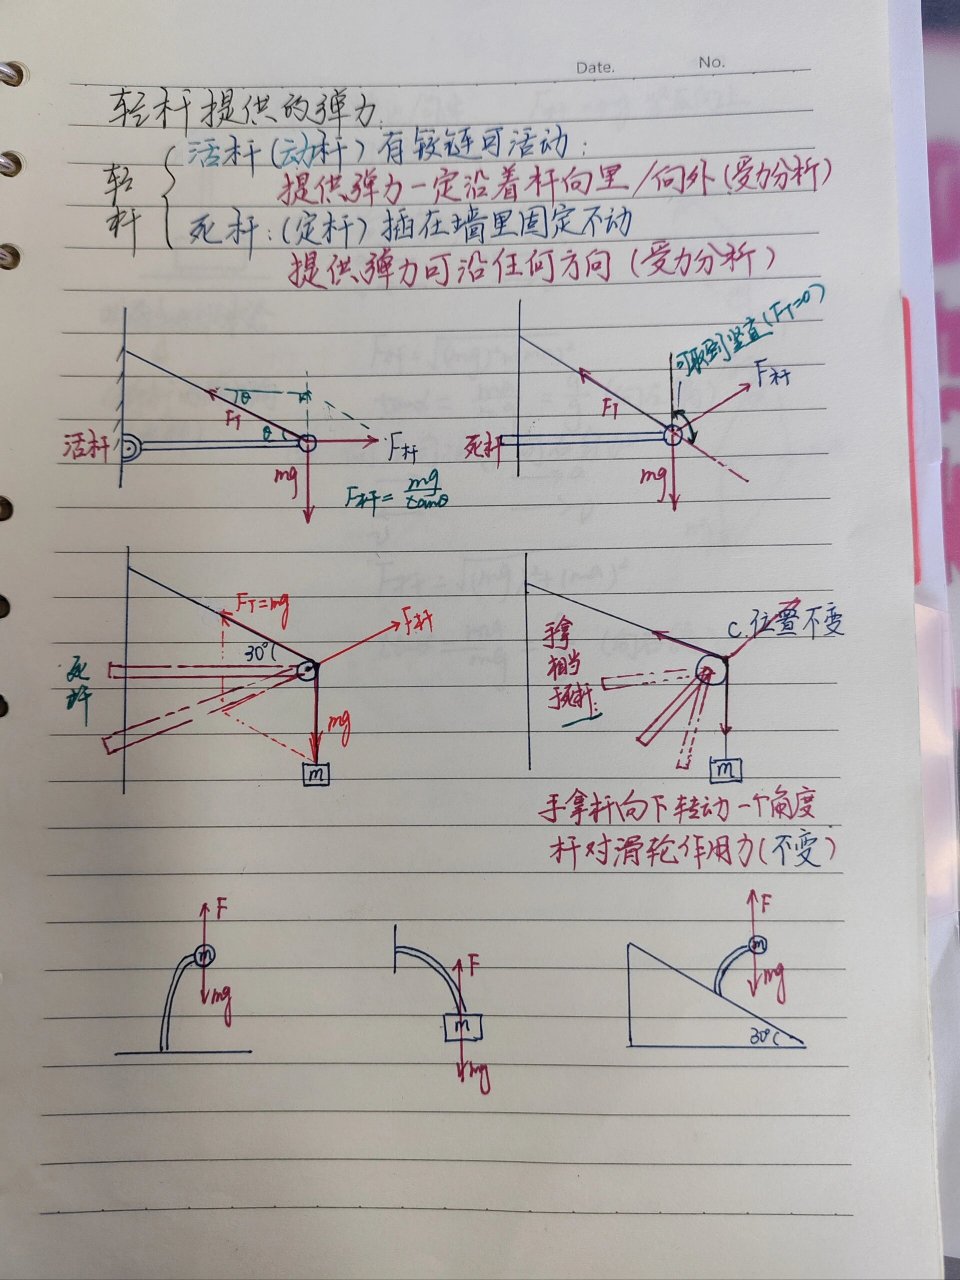 Date. No.
轻杆提供的弹力.
轻杆
活杆(动杆)有铰链可活动:
提供弹力一定沿着杆向里/向外(受力分析)
死杆:(定杆)插在墙里固定不动
提供弹力可沿任何方向(受力分析)
可取到竖直(FT=0)
θ
FT
θ
活杆
F杆
mg
F杆=mg/tanθ
F杆
FT
死杆
mg
FT=mg
F杆
30°
死杆
mg
m
C.位置不变
手拿
相当
于死杆:
m
手拿杆向下转动一个角度
杆对滑轮作用力(不变)
F
m
mg
F
m
mg
F
m
mg
30°